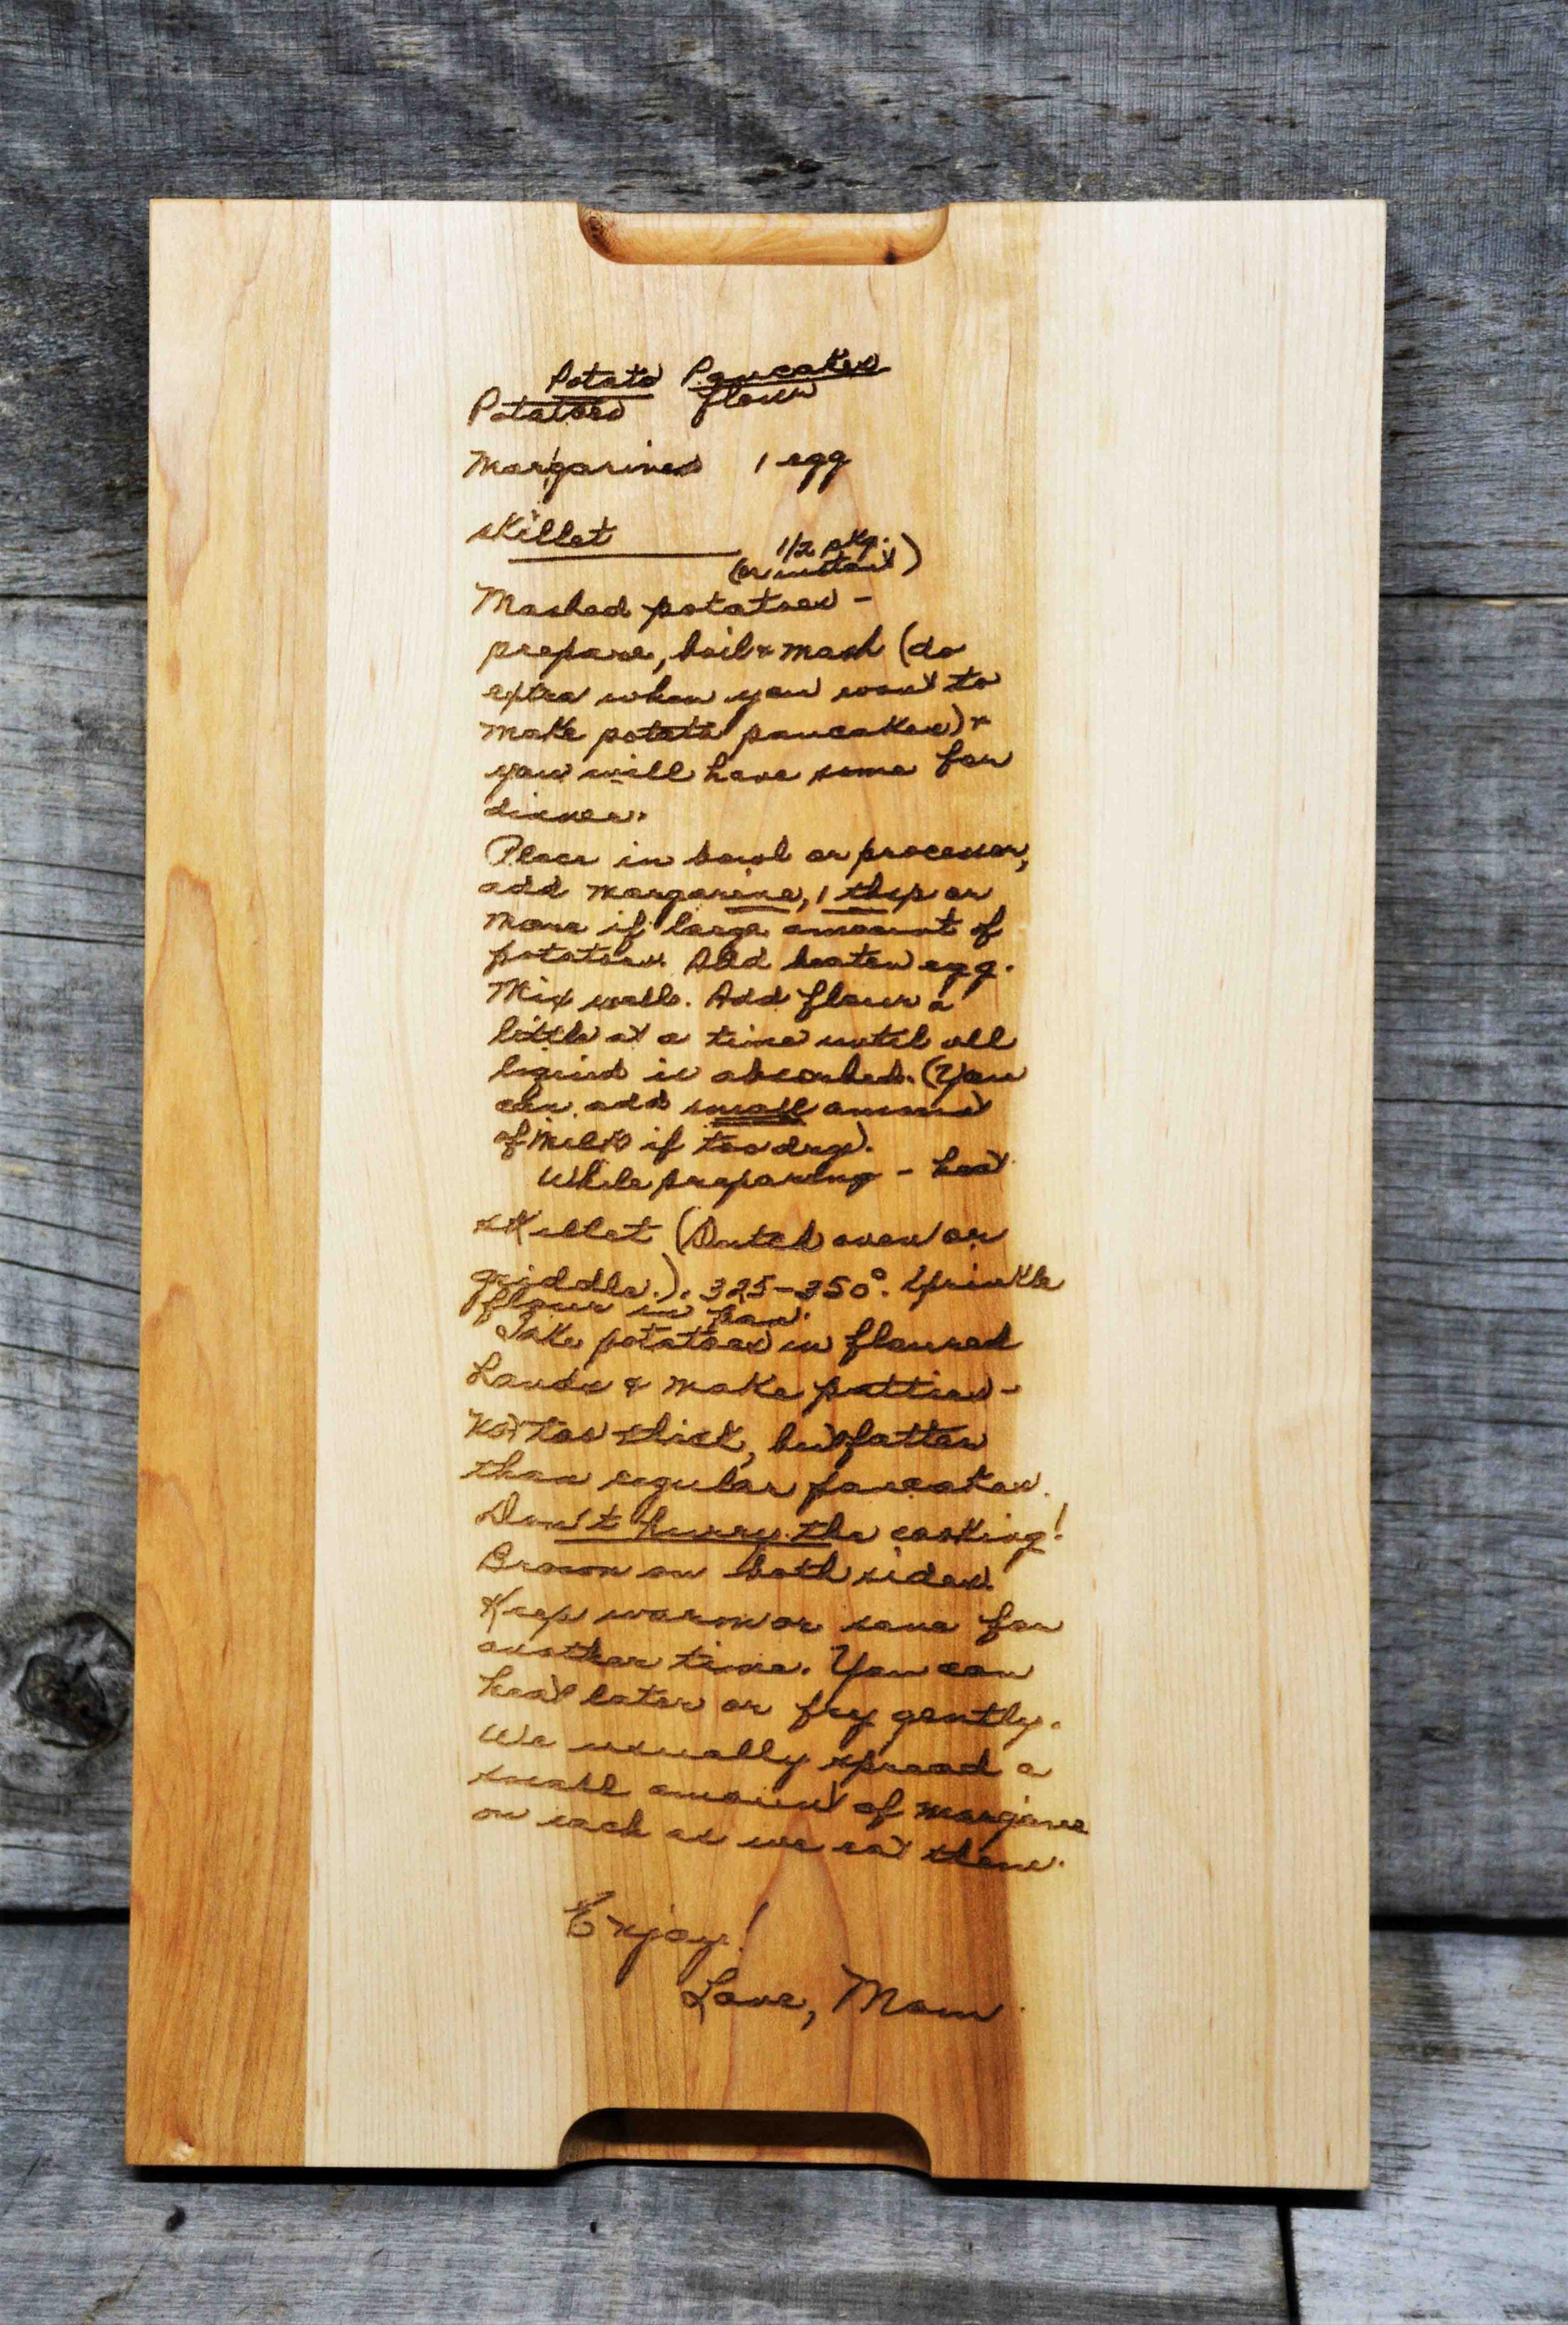 Potato Pancakes
Potatoes flour
Margarine 1 egg
skillet
1/2 pkg.
(or instant)
Mashed potatoes -
prepare, boil & mash (do
extra when you want to
make potato pancakes) &
you will have some for
dinner.
Place in bowl or processor,
add margarine, 1 tbsp or
more if large amount of
potatoes. Add beaten egg.
Mix well. Add flour a
little at a time until all
liquid is absorbed. (You
can add small amount
of milk if too dry).
While preparing - heat
skillet (Dutch oven or
griddle.). 325-350°. Sprinkle
flour in pan.
Take potatoes in floured
hands & make patties -
Not too thick, but fatter
than regular pancakes.
Don't hurry the cooking!
Brown on both sides.
Keep warm or save for
another time. You can
heat later or fry gently.
We usually spread a
small amount of margarine
on each as we eat them.
Enjoy!
Love, Mom